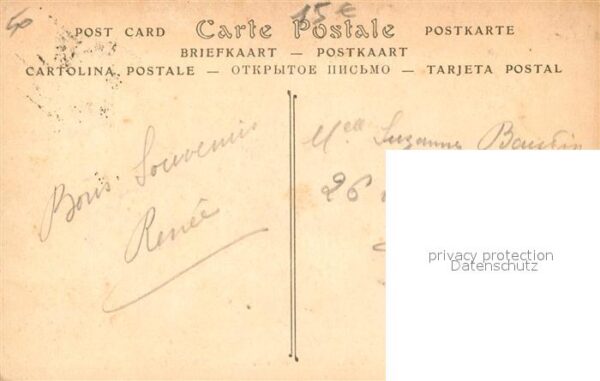 40
15 €
POST CARD Carte Postale POSTKARTE
BRIEFKAART — POSTKAART
CARTOLINA POSTALE — ОТКРЫТОЕ ПИСЬМО — TARJETA POSTAL
Bons Souvenirs
Renée
Mell Suzanne
26
privacy protection
Datenschutz